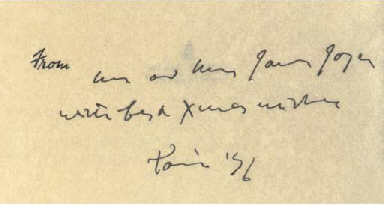 From Mr and Mrs James Joyce
with best Xmas wishes
Paris '36